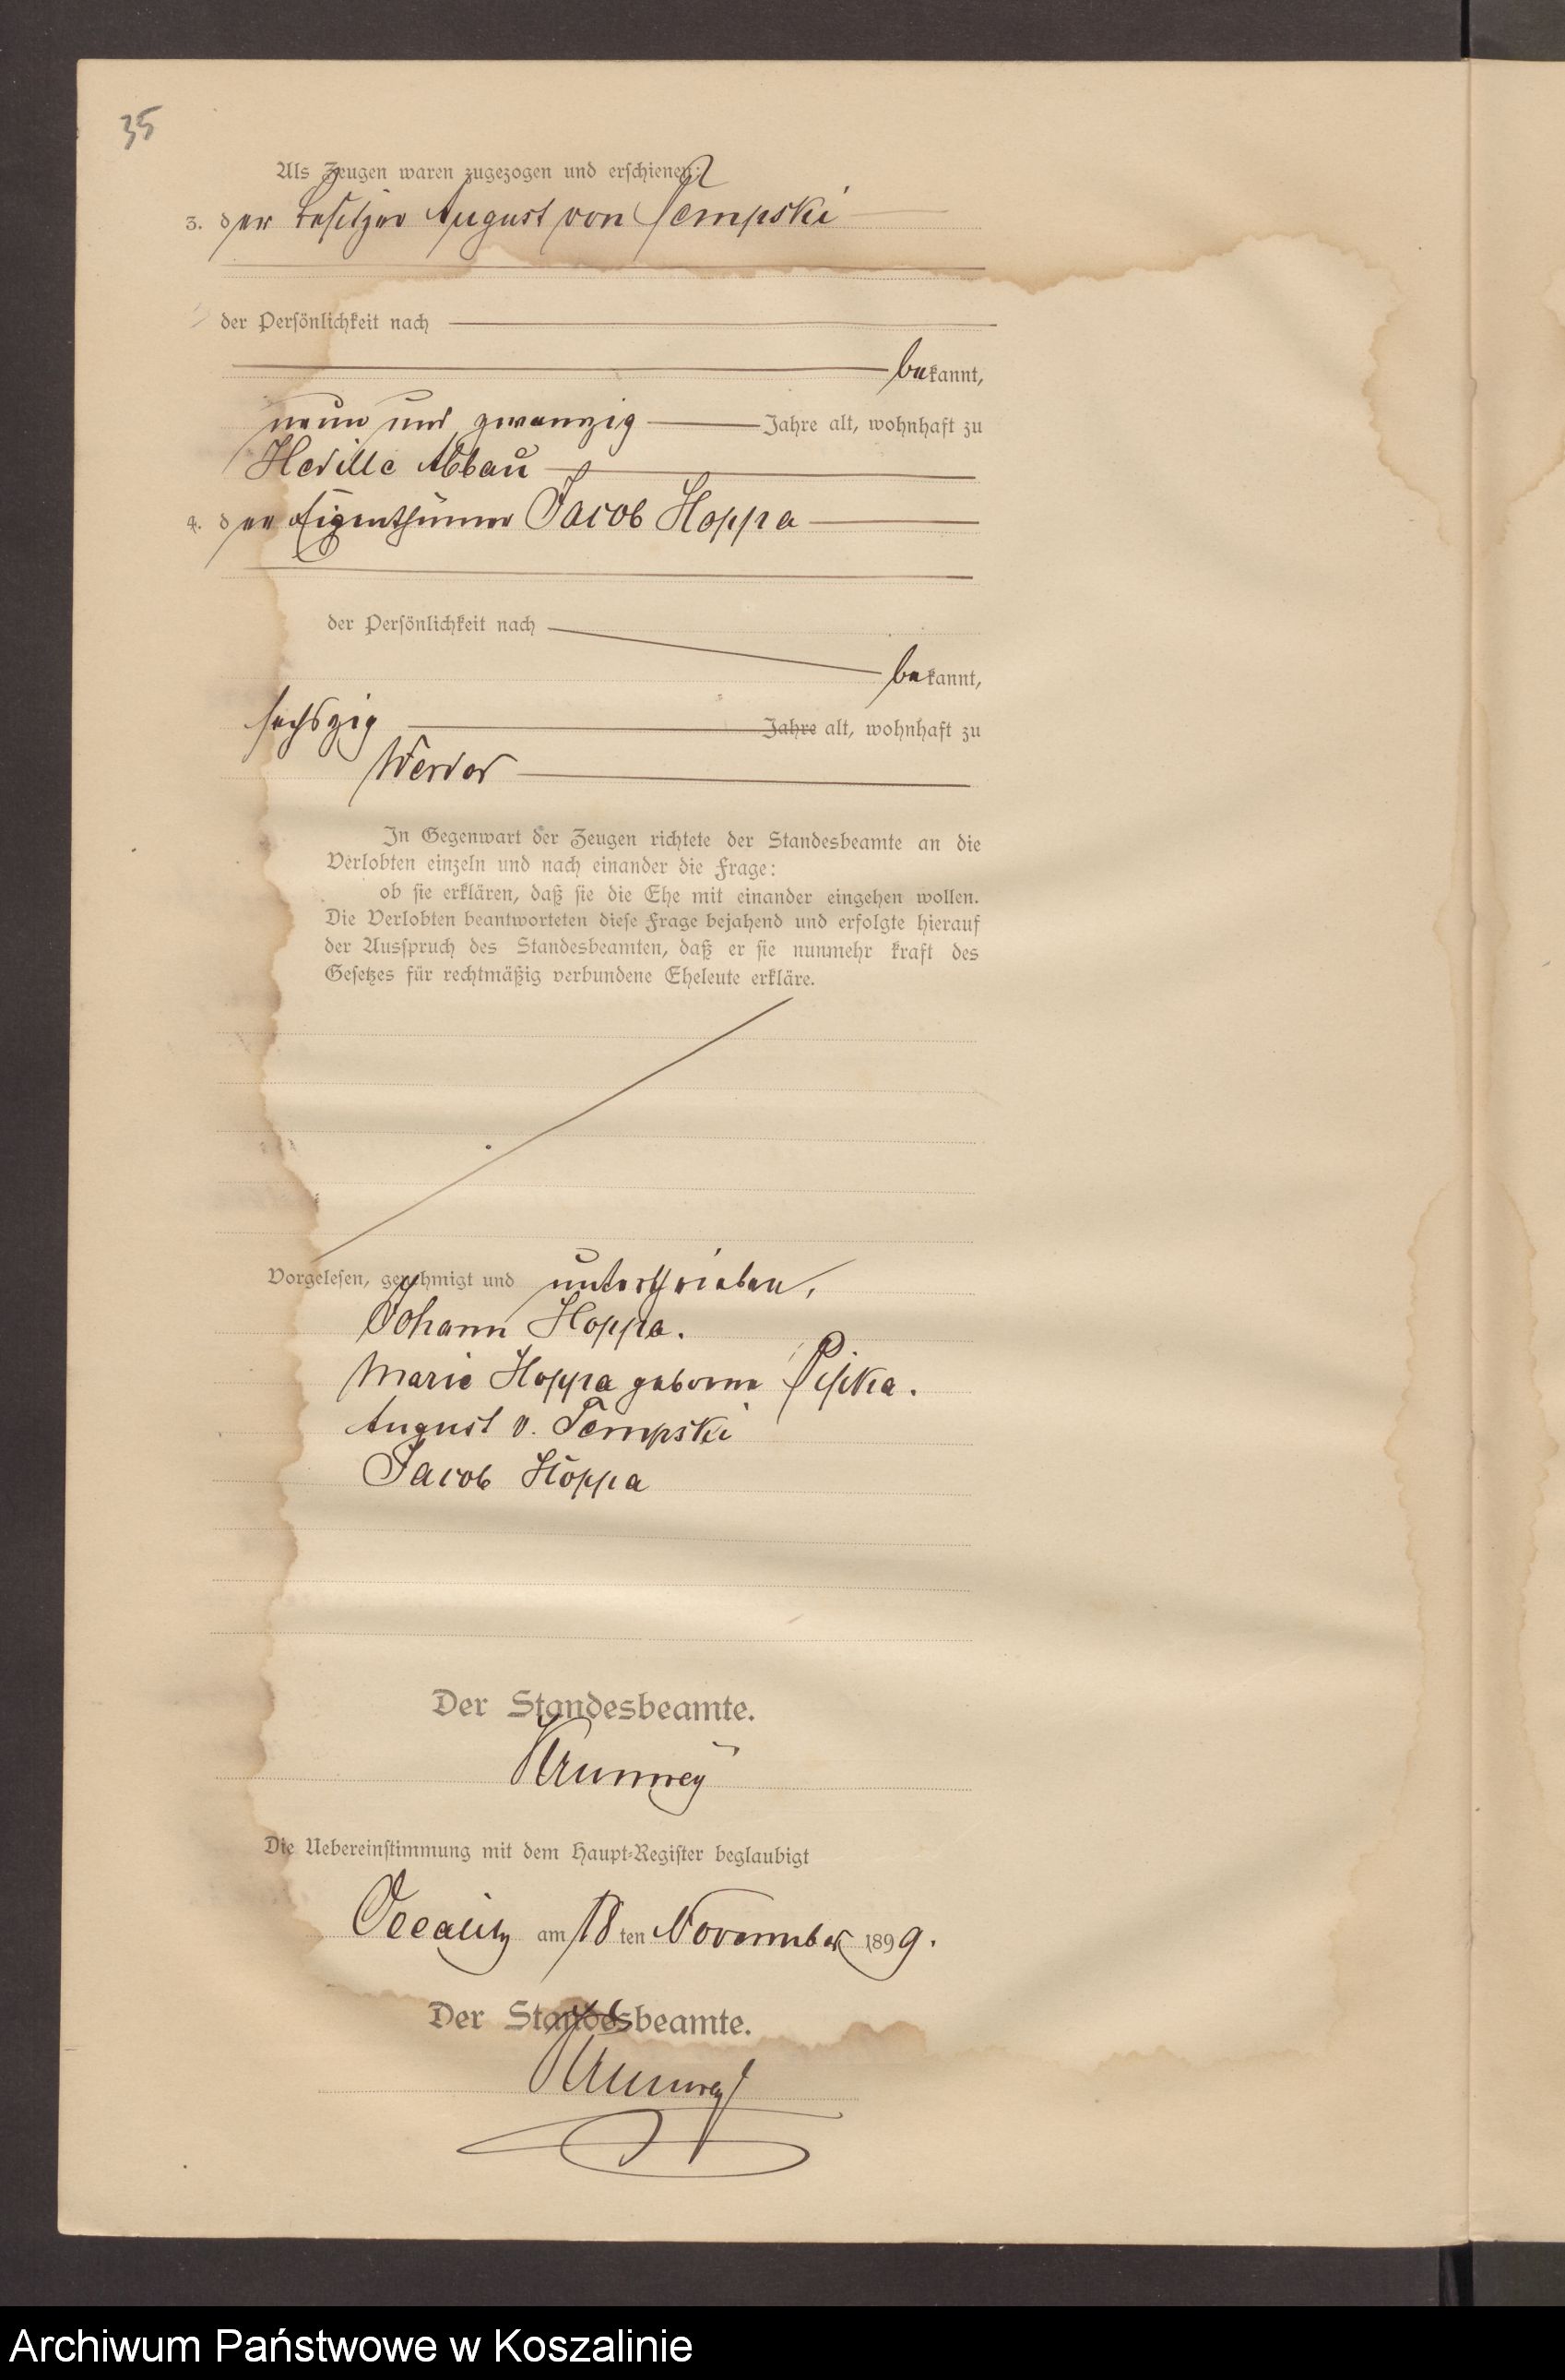 35
Als Zeugen waren zugezogen und erschienen:
3. der Besitzer August von Tempski
der Persönlichkeit nach
bekannt,
neun und zwanzig Jahre alt, wohnhaft zu
Hedille Abbau
4. der Eigenthümer Jacob Hoppa
der Persönlichkeit nach
bekannt,
sechszig Jahre alt, wohnhaft zu
Werder
In Gegenwart der Zeugen richtete der Standesbeamte an die
Verlobten einzeln und nach einander die Frage:
ob sie erklären, daß sie die Ehe mit einander eingehen wollen.
Die Verlobten beantworteten diese Frage bejahend und erfolgte hierauf
der Ausspruch des Standesbeamten, daß er sie nunmehr kraft des
Gesetzes für rechtmäßig verbundene Eheleute erkläre.
Vorgelesen, genehmigt und unterschrieben,
Johann Hoppa.
Marie Hoppa geborne
August v. Tempski
Jacob Hoppa
Der Standesbeamte.
Die Uebereinstimmung mit dem Haupt-Register beglaubigt
am 18ten November 1899.
Der Standesbeamte.
Archiwum Państwowe w Koszalinie